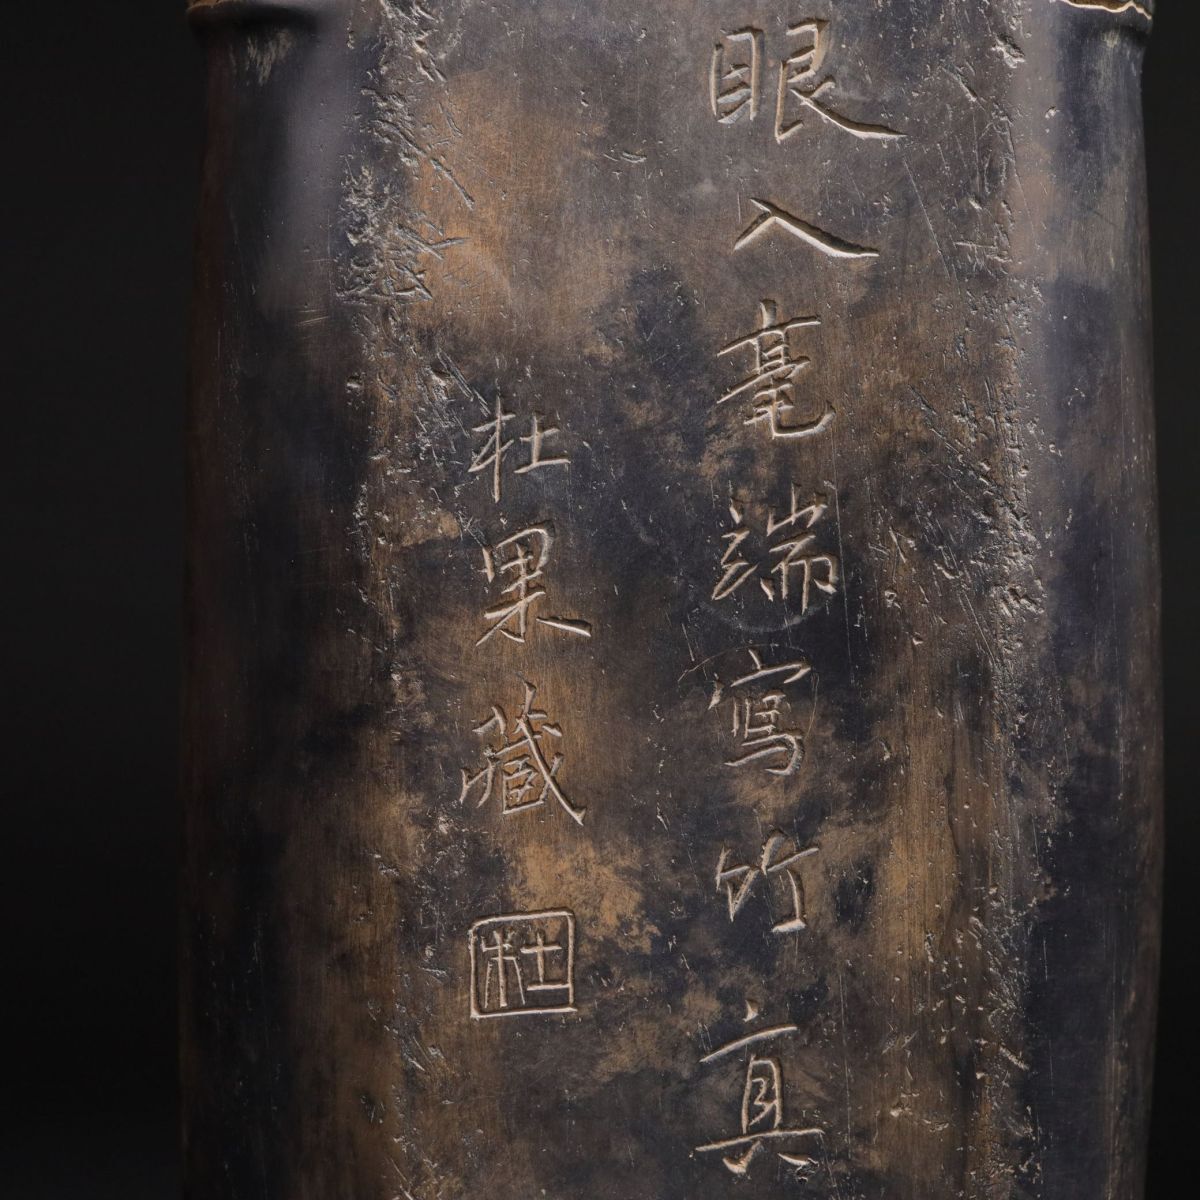 眼入毫端寫竹真
杜果藏
杜